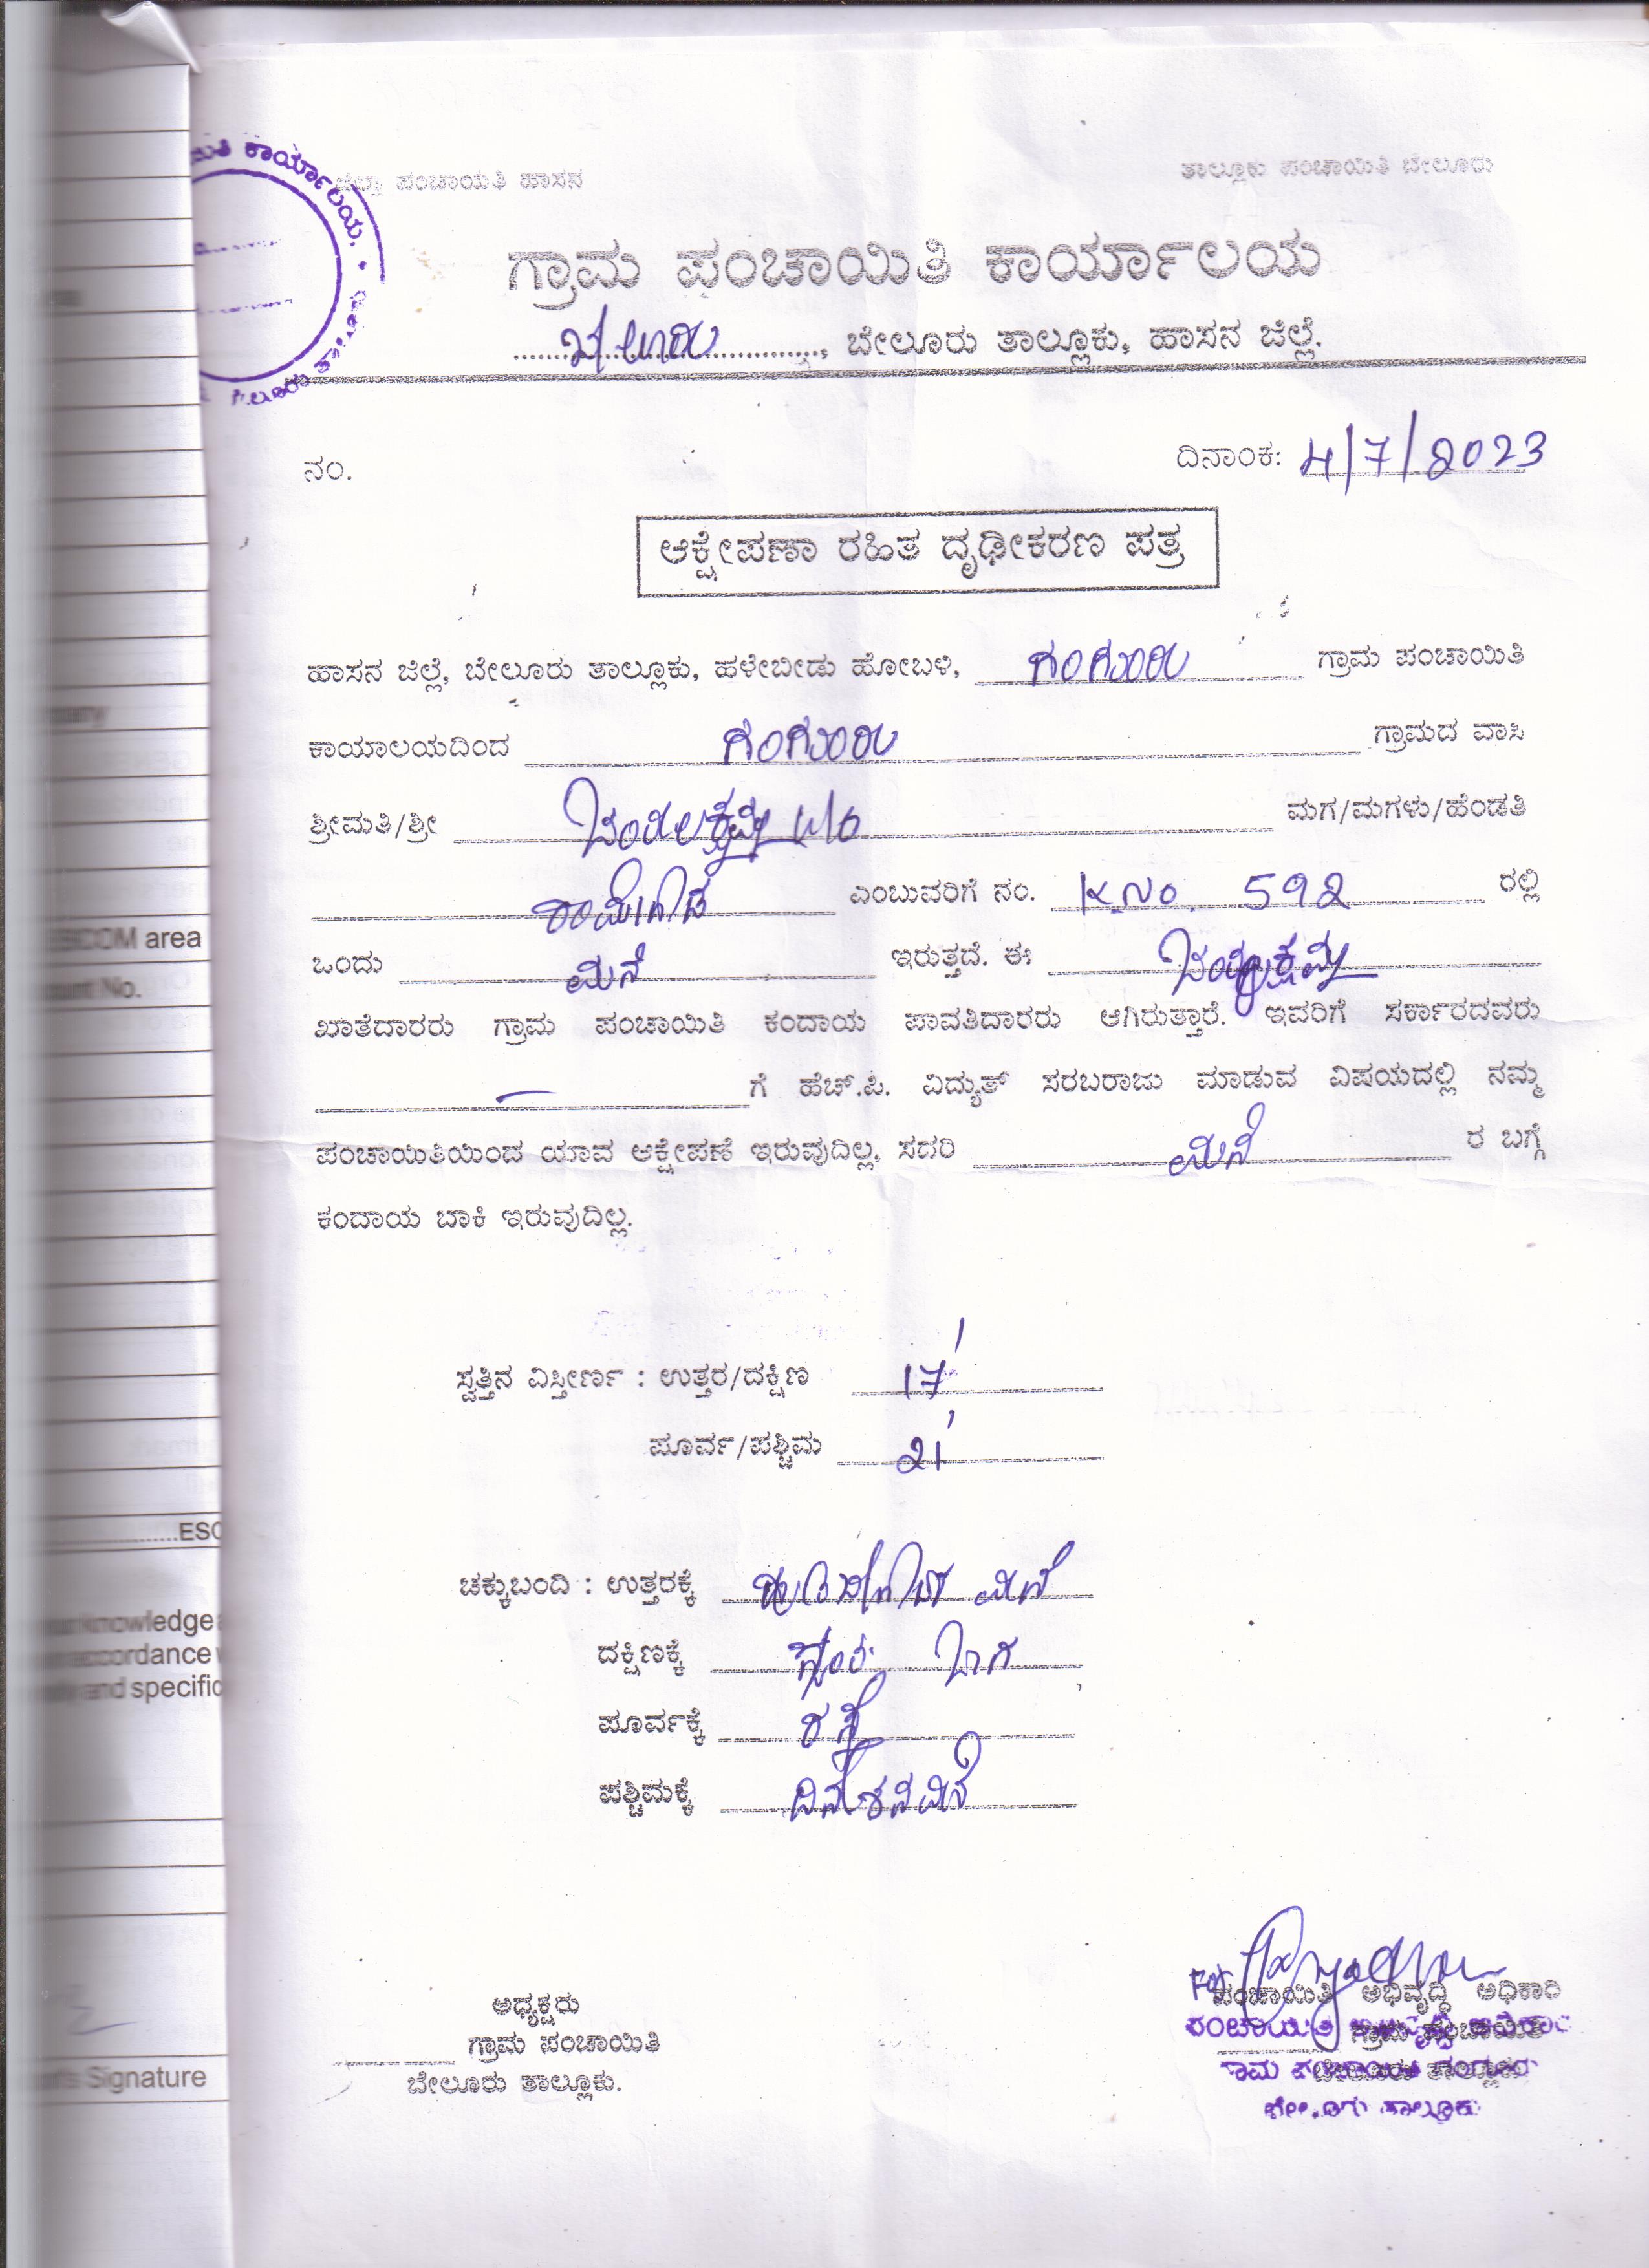 ಜಿಲ್ಲಾ ಪಂಚಾಯತಿ ಹಾಸನ
ತಾಲ್ಲೂಕು ಪಂಚಾಯಿತಿ ಬೇಲೂರು
ಗ್ರಾಮ ಪಂಚಾಯಿತಿ ಕಾರ್ಯಾಲಯ
, ಬೇಲೂರು ತಾಲ್ಲೂಕು, ಹಾಸನ ಜಿಲ್ಲೆ.
ನಂ.
ದಿನಾಂಕ: 4/7/2023
ಆಕ್ಷೇಪಣಾ ರಹಿತ ದೃಢೀಕರಣ ಪತ್ರ
ಹಾಸನ ಜಿಲ್ಲೆ, ಬೇಲೂರು ತಾಲ್ಲೂಕು, ಹಳೇಬೀಡು ಹೋಬಳಿ, ಗಂಗೂರು ಗ್ರಾಮ ಪಂಚಾಯಿತಿ
ಕಾಯಾಲಯದಿಂದ ಗಂಗೂರು ಗ್ರಾಮದ ವಾಸಿ
ಶ್ರೀಮತಿ/ಶ್ರೀ W/o ಮಗ/ಮಗಳು/ಹೆಂಡತಿ
ರಾಮೇಗೌಡ ಎಂಬುವರಿಗೆ ನಂ. K.No. 592 ರಲ್ಲಿ
ಒಂದು ಮನೆ ಇರುತ್ತದೆ. ಈ
ಖಾತೆದಾರರು ಗ್ರಾಮ ಪಂಚಾಯಿತಿ ಕಂದಾಯ ಪಾವತಿದಾರರು ಆಗಿರುತ್ತಾರೆ. ಇವರಿಗೆ ಸರ್ಕಾರದವರು
ಗೆ ಹೆಚ್.ಪಿ. ವಿದ್ಯುತ್ ಸರಬರಾಜು ಮಾಡುವ ವಿಷಯದಲ್ಲಿ ನಮ್ಮ
ಪಂಚಾಯಿತಿಯಿಂದ ಯಾವ ಆಕ್ಷೇಪಣೆ ಇರುವುದಿಲ್ಲ, ಸದರಿ ಮನೆ ರ ಬಗ್ಗೆ
ಕಂದಾಯ ಬಾಕಿ ಇರುವುದಿಲ್ಲ.
ಸ್ವತ್ತಿನ ವಿಸ್ತೀರ್ಣ : ಉತ್ತರ/ದಕ್ಷಿಣ 17'
ಪೂರ್ವ/ಪಶ್ಚಿಮ 21'
ಚಕ್ಕುಬಂದಿ : ಉತ್ತರಕ್ಕೆ ಮನೆ
ದಕ್ಷಿಣಕ್ಕೆ ಜಾಗ
ಪೂರ್ವಕ್ಕೆ ರಸ್ತೆ
ಪಶ್ಚಿಮಕ್ಕೆ ದಿನೇಶನ ಮನೆ
ಅಧ್ಯಕ್ಷರು
ಗ್ರಾಮ ಪಂಚಾಯಿತಿ
ಬೇಲೂರು ತಾಲ್ಲೂಕು.
For
ಪಂಚಾಯಿತಿ ಅಭಿವೃದ್ಧಿ ಅಧಿಕಾರಿ
ಗ್ರಾಮ ಪಂಚಾಯಿತಿ
ಬೇಲೂರು ತಾಲ್ಲೂಕು
ಕಾರ್ಯಾಲಯ.
area
No.
ESC
knowledge
accordance
and specific
Signature